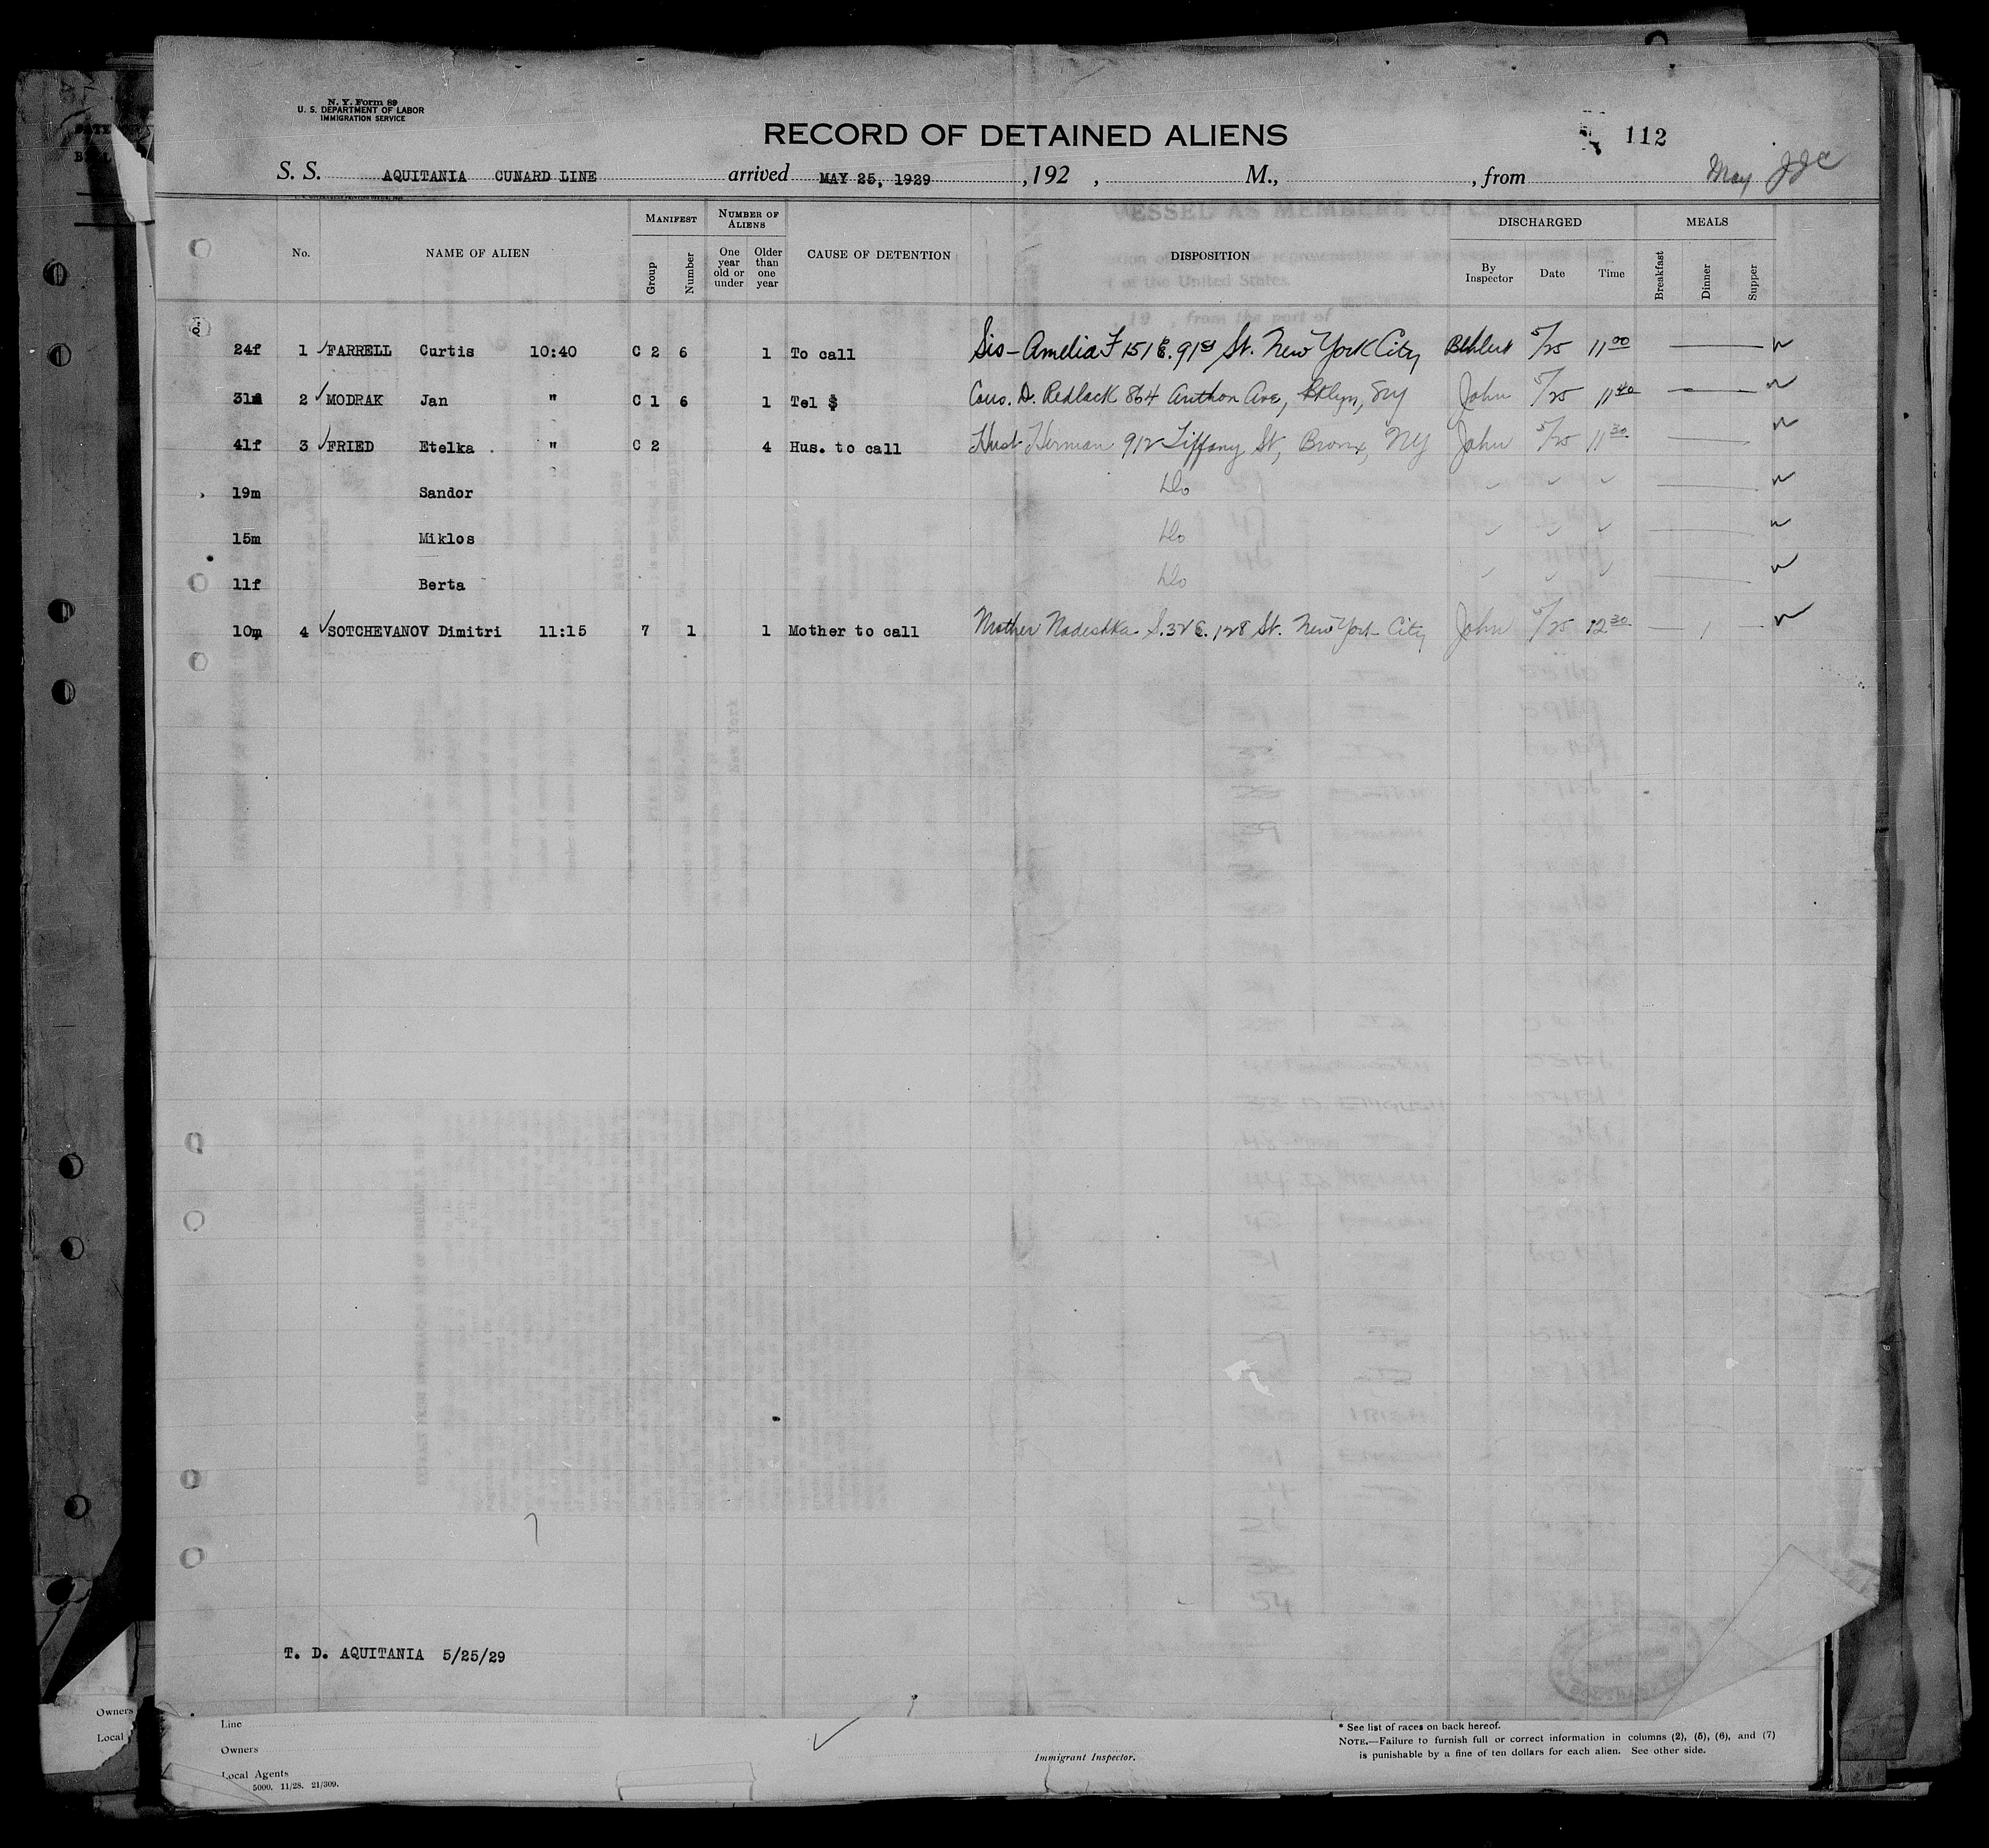 N. Y. Form 89
U. S. DEPARTMENT OF LABOR
IMMIGRATION SERVICE
RECORD OF DETAINED ALIENS
112
S. S. AQUITANIA CUNARD LINE arrived MAY 25, 1929, 192 , M., , from May JJC
No. NAME OF ALIEN MANIFEST Group Number NUMBER OF ALIENS One year old or under Older than one year CAUSE OF DETENTION DISPOSITION DISCHARGED By Inspector Date Time MEALS Breakfast Dinner Supper
24f 1 FARRELL Curtis 10:40 C 2 6 1 To call Sis - Amelia F 151 E. 91st St. New York City 5/25 11 00
31m 2 MODRAK Jan " C 1 6 1 Tel $ Cous. D. Redlack 864 Anthon Ave, Bklyn, NY John 5/25 11 40
41f 3 FRIED Etelka " C 2 4 Hus. to call Husb Herman 912 Tiffany St, Bronx, NY John 5/25 11 30
19m Sandor Do
15m Miklos Do
11f Berta Do
10m 4 SOTCHEVANOV Dimitri 11:15 7 1 1 Mother to call Mother Nadeshka S. 32 E. 128 St. New York City John 5/25 12 30 1
T. D. AQUITANIA 5/25/29
Line
Owners
Local Agents
5000. 11/28. 21/309.
Immigrant Inspector.
* See list of races on back hereof.
NOTE.—Failure to furnish full or correct information in columns (2), (5), (6), and (7)
is punishable by a fine of ten dollars for each alien. See other side.
Owners
Local